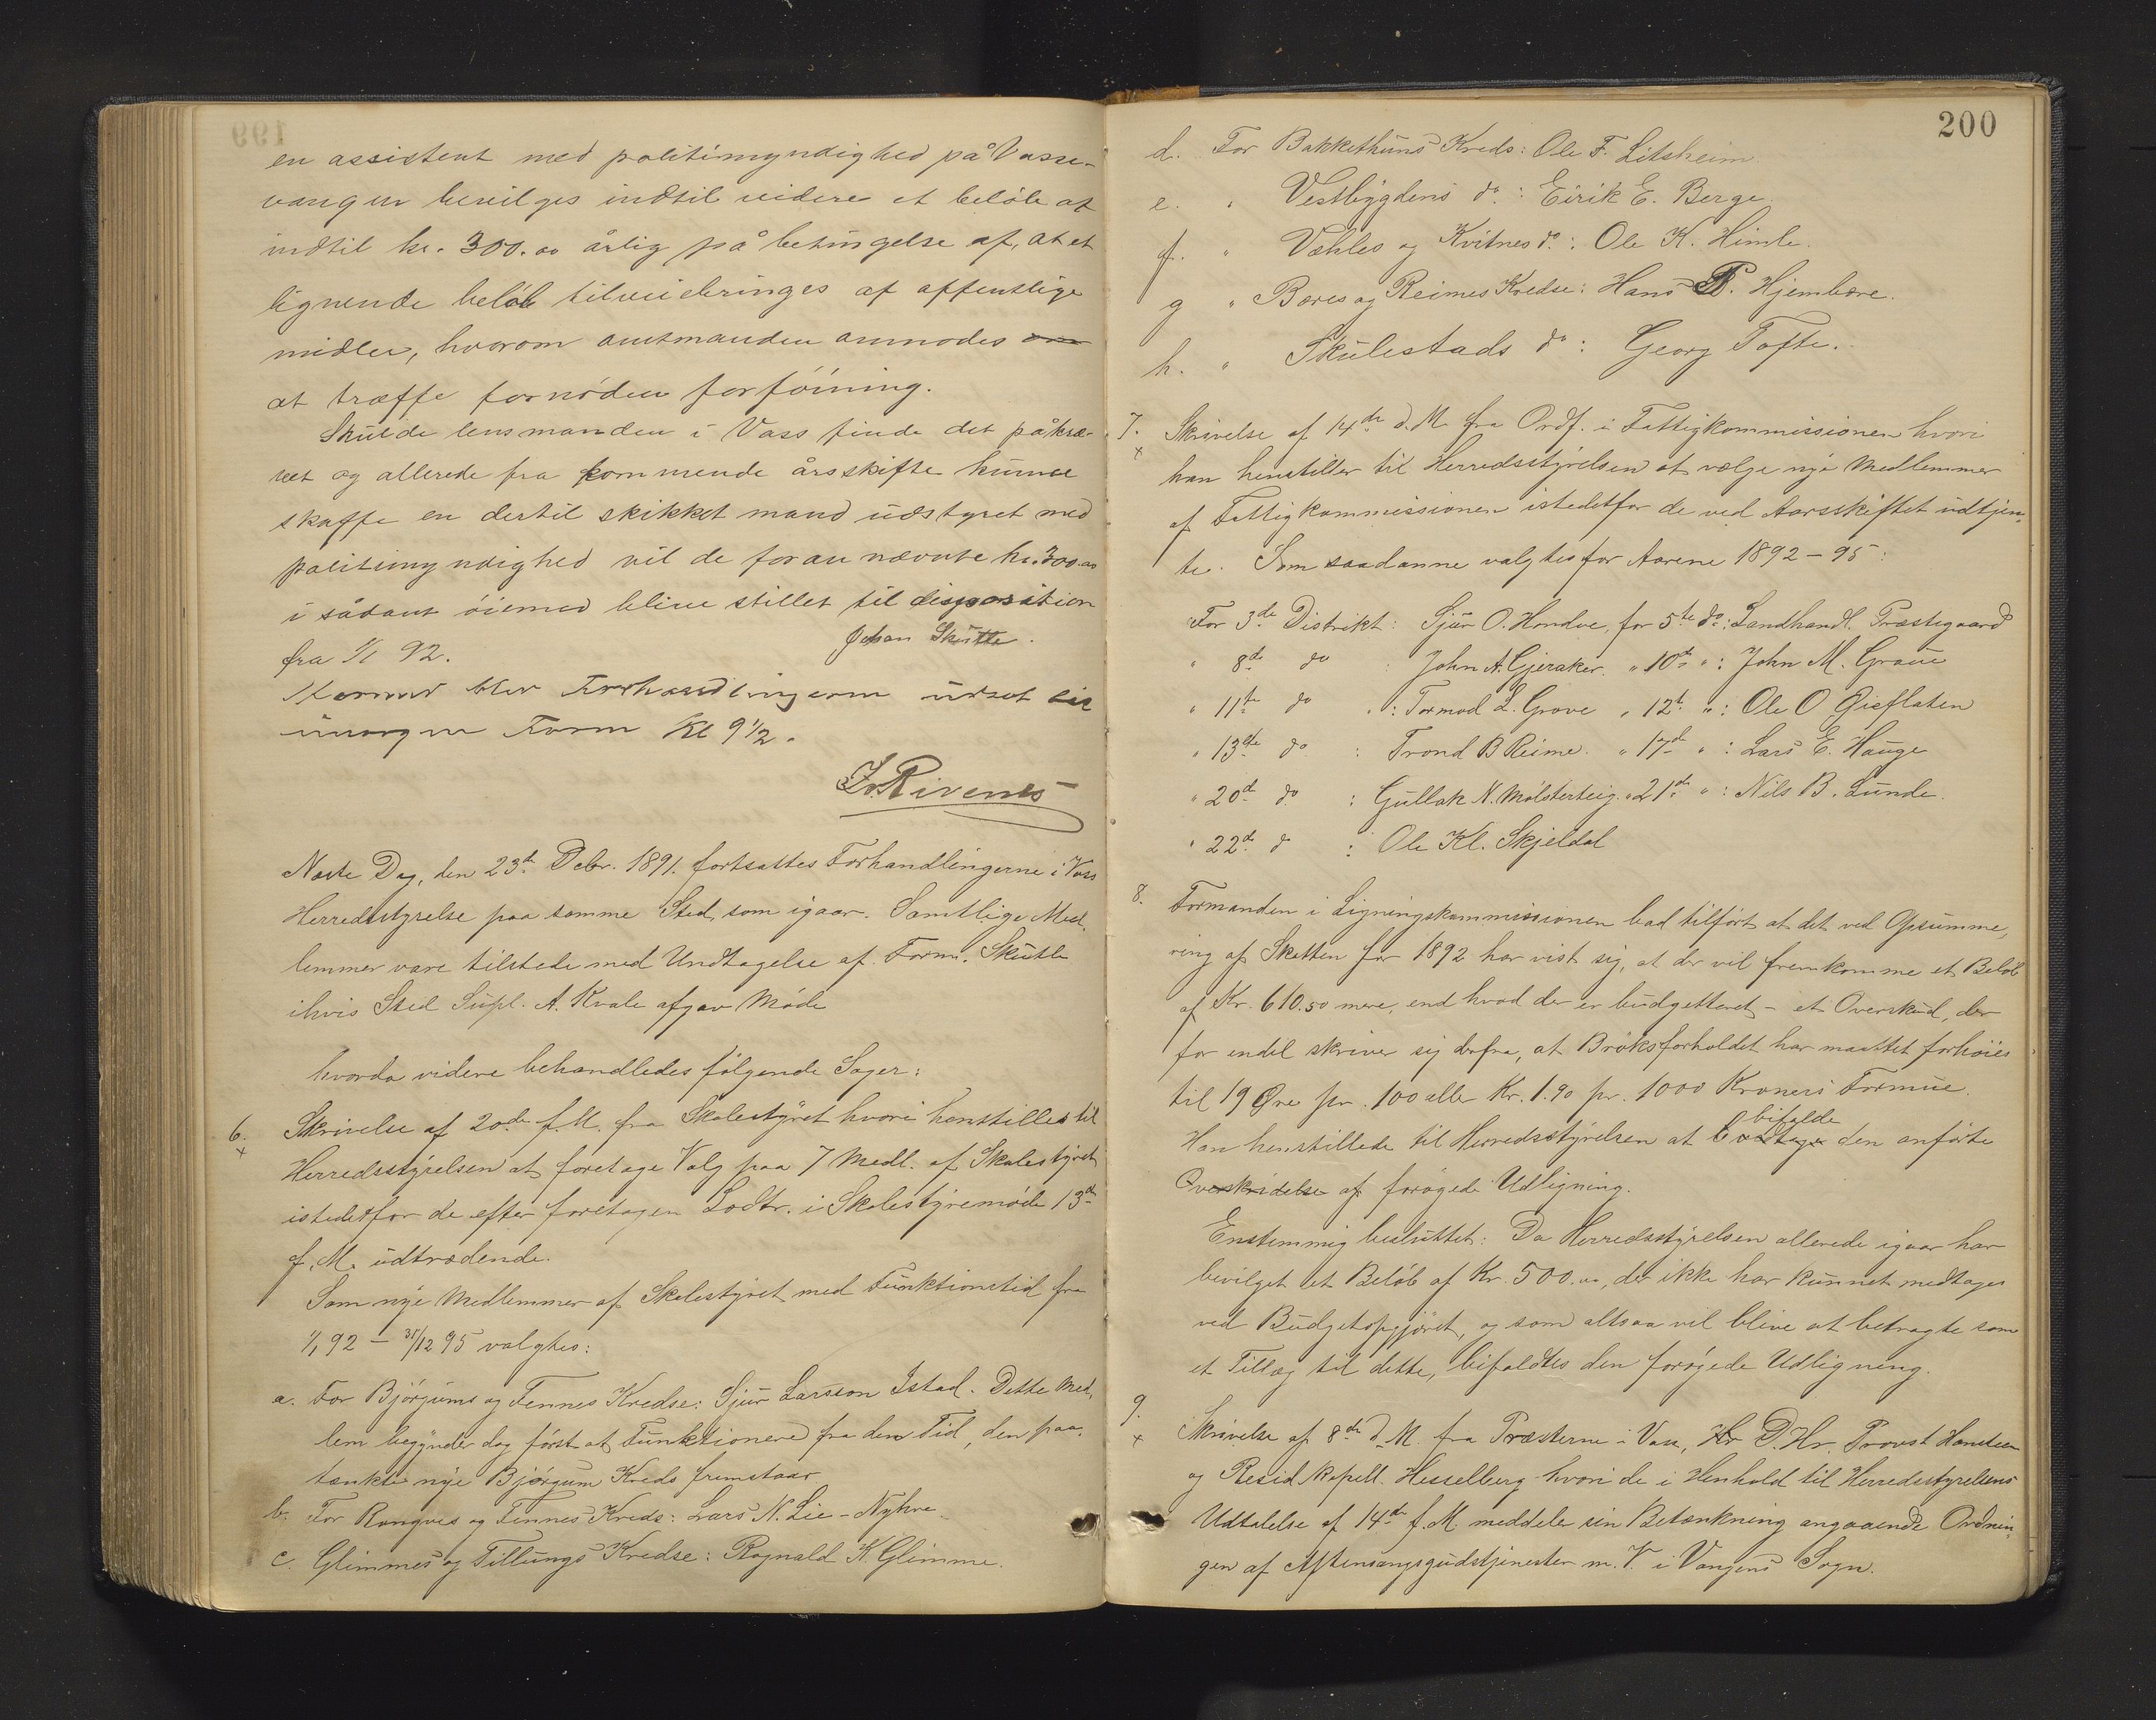 en assistent med politimyndighed på Vosse-
vangen bevilges indtil videre et beløb af
indtil kr. 300.00 årlig på betingelse af, at et
lignende beløb tilveiebringes af offentlige
midler, hvorom amtmanden anmodes om
at træffe fornøden forføining.
Skulde lensmanden i Voss finde det påkræ-
vet og allerede fra kommende årsskifte kunne
skaffe en dertil skikket mand udstyret med
politimyndighed vil de foran nævnte kr. 300.00
i sådant øiemed blive stillet til disposition
fra 1/1 92.
Johan Skutle.
Hermed blev Forhandlingerne udsat til
imorgen Form Kl 9 1/2.
Rivenes
Næste Dag, den 23de Decbr. 1891. fortsattes Forhandlingerne i Voss
Herredsstyrelse paa samme Sted, som igaar. Samtlige Med-
lemmer vare tilstede med Undtagelse af Form. Skutle
ihvis Sted Supl. A. Kvale afgav Møde
hvorda videre behandledes følgende Sager:
6.
x
Skrivelse af 20de f. M. fra Skolestyret hvori henstilles til
Herredsstyrelsen at foretage Valg paa 7 Medl. af Skolestyret
istedetfor de efter foretagen Lodtr. i Skolestyremøde 13de
f. M. udtrædende.
Som nye Medlemmer af Skolestyret med Funktionstid fra
1/1 92 – 31/12 95 valgtes:
a. For Bjørgums og Tennes Kredse: Sjur Larsson Istad. Dette Med-
lem begynder dog først at Funktionere fra den Tid, den paa-
tænkte nye Bjørgum Kreds fremstaar
b. For Rongves og Finnes Kreds: Lars N. Lie - Nyhre
c. Glimmes og Tillungs Kredse: Rognald K. Glimme.
200
d. For Bakkethuns Kreds: Ole F. Litsheim
e. " Vestbygdens do: Eirik E. Berge.
f. " Væhles og Kvitnes do: Ole K. Himle.
g " Børes og Reimes Kredse: Hans B. Hjembøre.
h. " Skulestads do: Georg Tofte.
7.
x
Skrivelse af 14de d. M. fra Ordf. i Fattigkommissionen hvori
han henstiller til Herredsstyrelsen at vælge nye Medlemmer
af Fattigkommissionen istedetfor de ved Aarsskiftet udtjen-
te. Som saadanne valgtes for Aarene 1892 – 95:
For 3de Distrikt: Sjur O. Hondve, for 5te do: Landhandl. Præstegaard
" 8de do : John A. Gjeraker. " 10de " : John M. Graue
" 11te do " : Tormod L. Grove " 12te " : Ole O Gjeflaten
" 13de do : Trond B Reime. " 17de " : Lars E. Hauge
" 20de do : Gullak N. Mølsterteig. " 21de " : Nils B. Lunde.
" 22de do : Ole Kl. Skjeldal
8. Formanden i Ligningskommissionen bad tilført at det ved Opsumme-
ring af Skatten for 1892 har vist sig, at der vil fremkomme et Beløb
af Kr. 610.50 mere, end hvad der er budgetteret – et Overskud, der
for endel skriver sig derfra, at Brøksforholdet har maattet forhøies
til 19 Øre pr. 100 eller Kr. 1.90 pr. 1000 Kroners Formue.
bifalde
Han henstillede til Herredsstyrelsen at den anførte
Overskridelse af forøgede Udligning.
Enstemmig besluttet: Da Herredsstyrelsen allerede igaar har
bevilget et Beløb af Kr. 500.00, der ikke har kunnet medtages
ved Budgetopgjøret, og som altsaa vil blive at betragte som
et Tillæg til dette, bifaldtes den forøgede Udligning.
9.
x
Skrivelse af 8de d. M. fra Præsterne i Voss, Hr D. Hr. Provst Handsen
og Resid. Kapell. Hesselberg hvori de i Henhold til Herredsstyrelsens
Udtalelse af 14de f. M. meddeler sin Betænkning angaaende Ordnin-
gen af Aftensangsgudstjenester m. V. i Vangens Sogn.